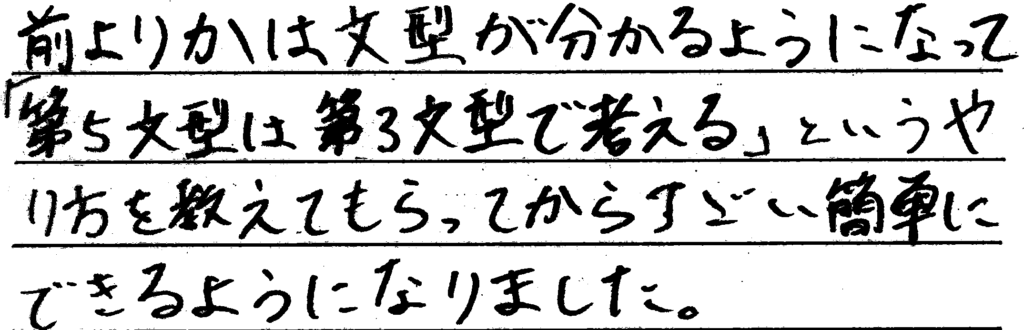 前よりかは文型が分かるようになって
「第5文型は第3文型で考える」というや
り方を教えてもらってからすごい簡単に
できるようになりました。